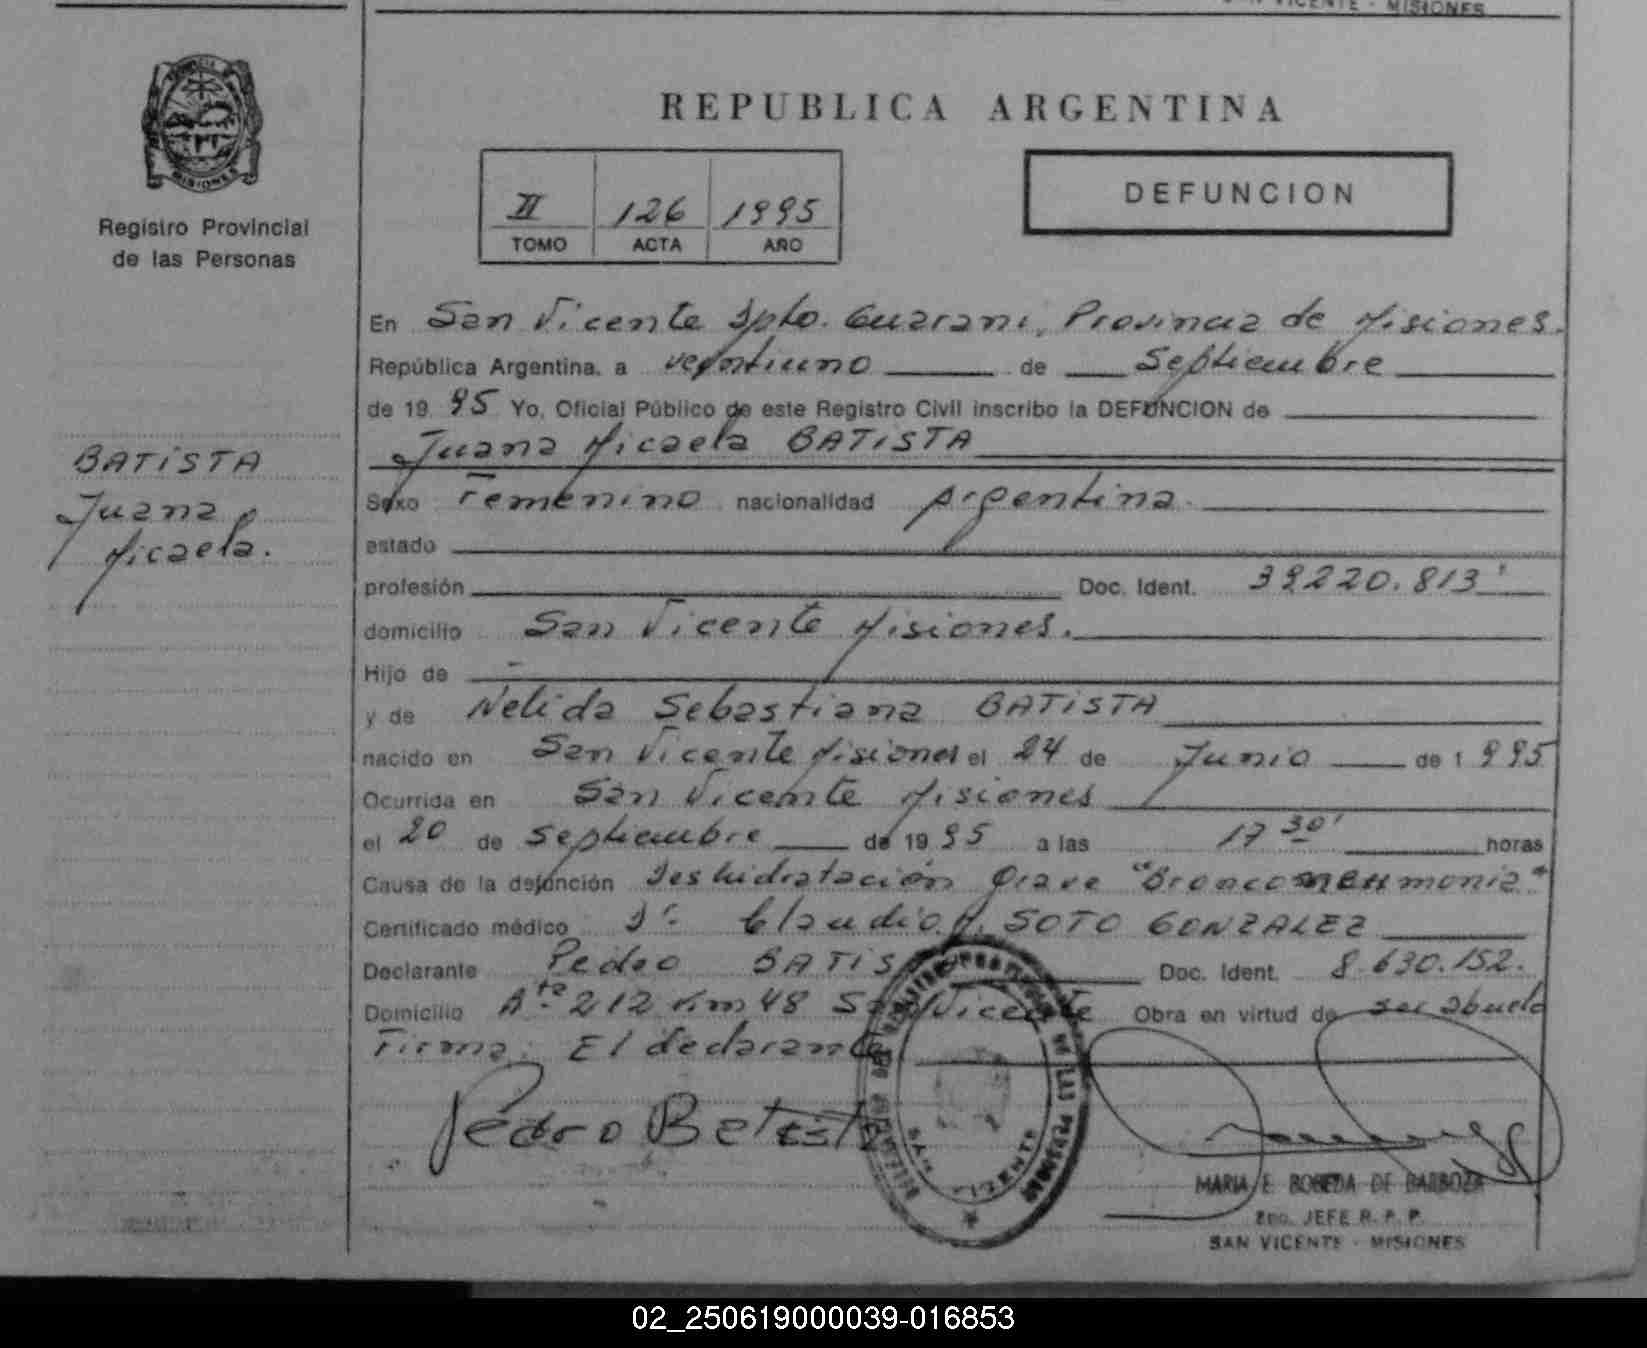 SAN VICENTE - MISIONES
PROVINCIA DE
MISIONES
Registro Provincial
de las Personas
REPUBLICA ARGENTINA
II 126 1995
TOMO ACTA AÑO
DEFUNCION
En San Vicente Dpto. Guarani, Provincia de Misiones.
República Argentina, a veintiuno de Septiembre
de 19 95 Yo, Oficial Público de este Registro Civil inscribo la DEFUNCION de
Juana Micaela BATISTA
BATISTA
Juana
Micaela.
Sexo Femenino nacionalidad Argentina.
estado
profesión Doc. Ident. 39220.813
domicilio San Vicente Misiones.
Hijo de
y de Nelida Sebastiana BATISTA
nacido en San Vicente Misiones el 24 de Junio de 1 995
Ocurrida en San Vicente Misiones
el 20 de Septiembre de 19 95 a las 17 30' horas
Causa de la defunción Deshidratación grave "Bronconeumonia"
Certificado médico Dr. Claudio M. SOTO GONZALEZ
Declarante Pedro BATIS Doc. Ident. 8.630.152.
Domicilio Rta 212 Km 48 San Vicente Obra en virtud de ser abuelo
Firma: El declarante
Pedro Betista
SAN VICENTE
MARIA E. BOBEDA DE BARBOZA
2DO. JEFE R. P. P.
SAN VICENTE - MISIONES
02_250619000039-016853